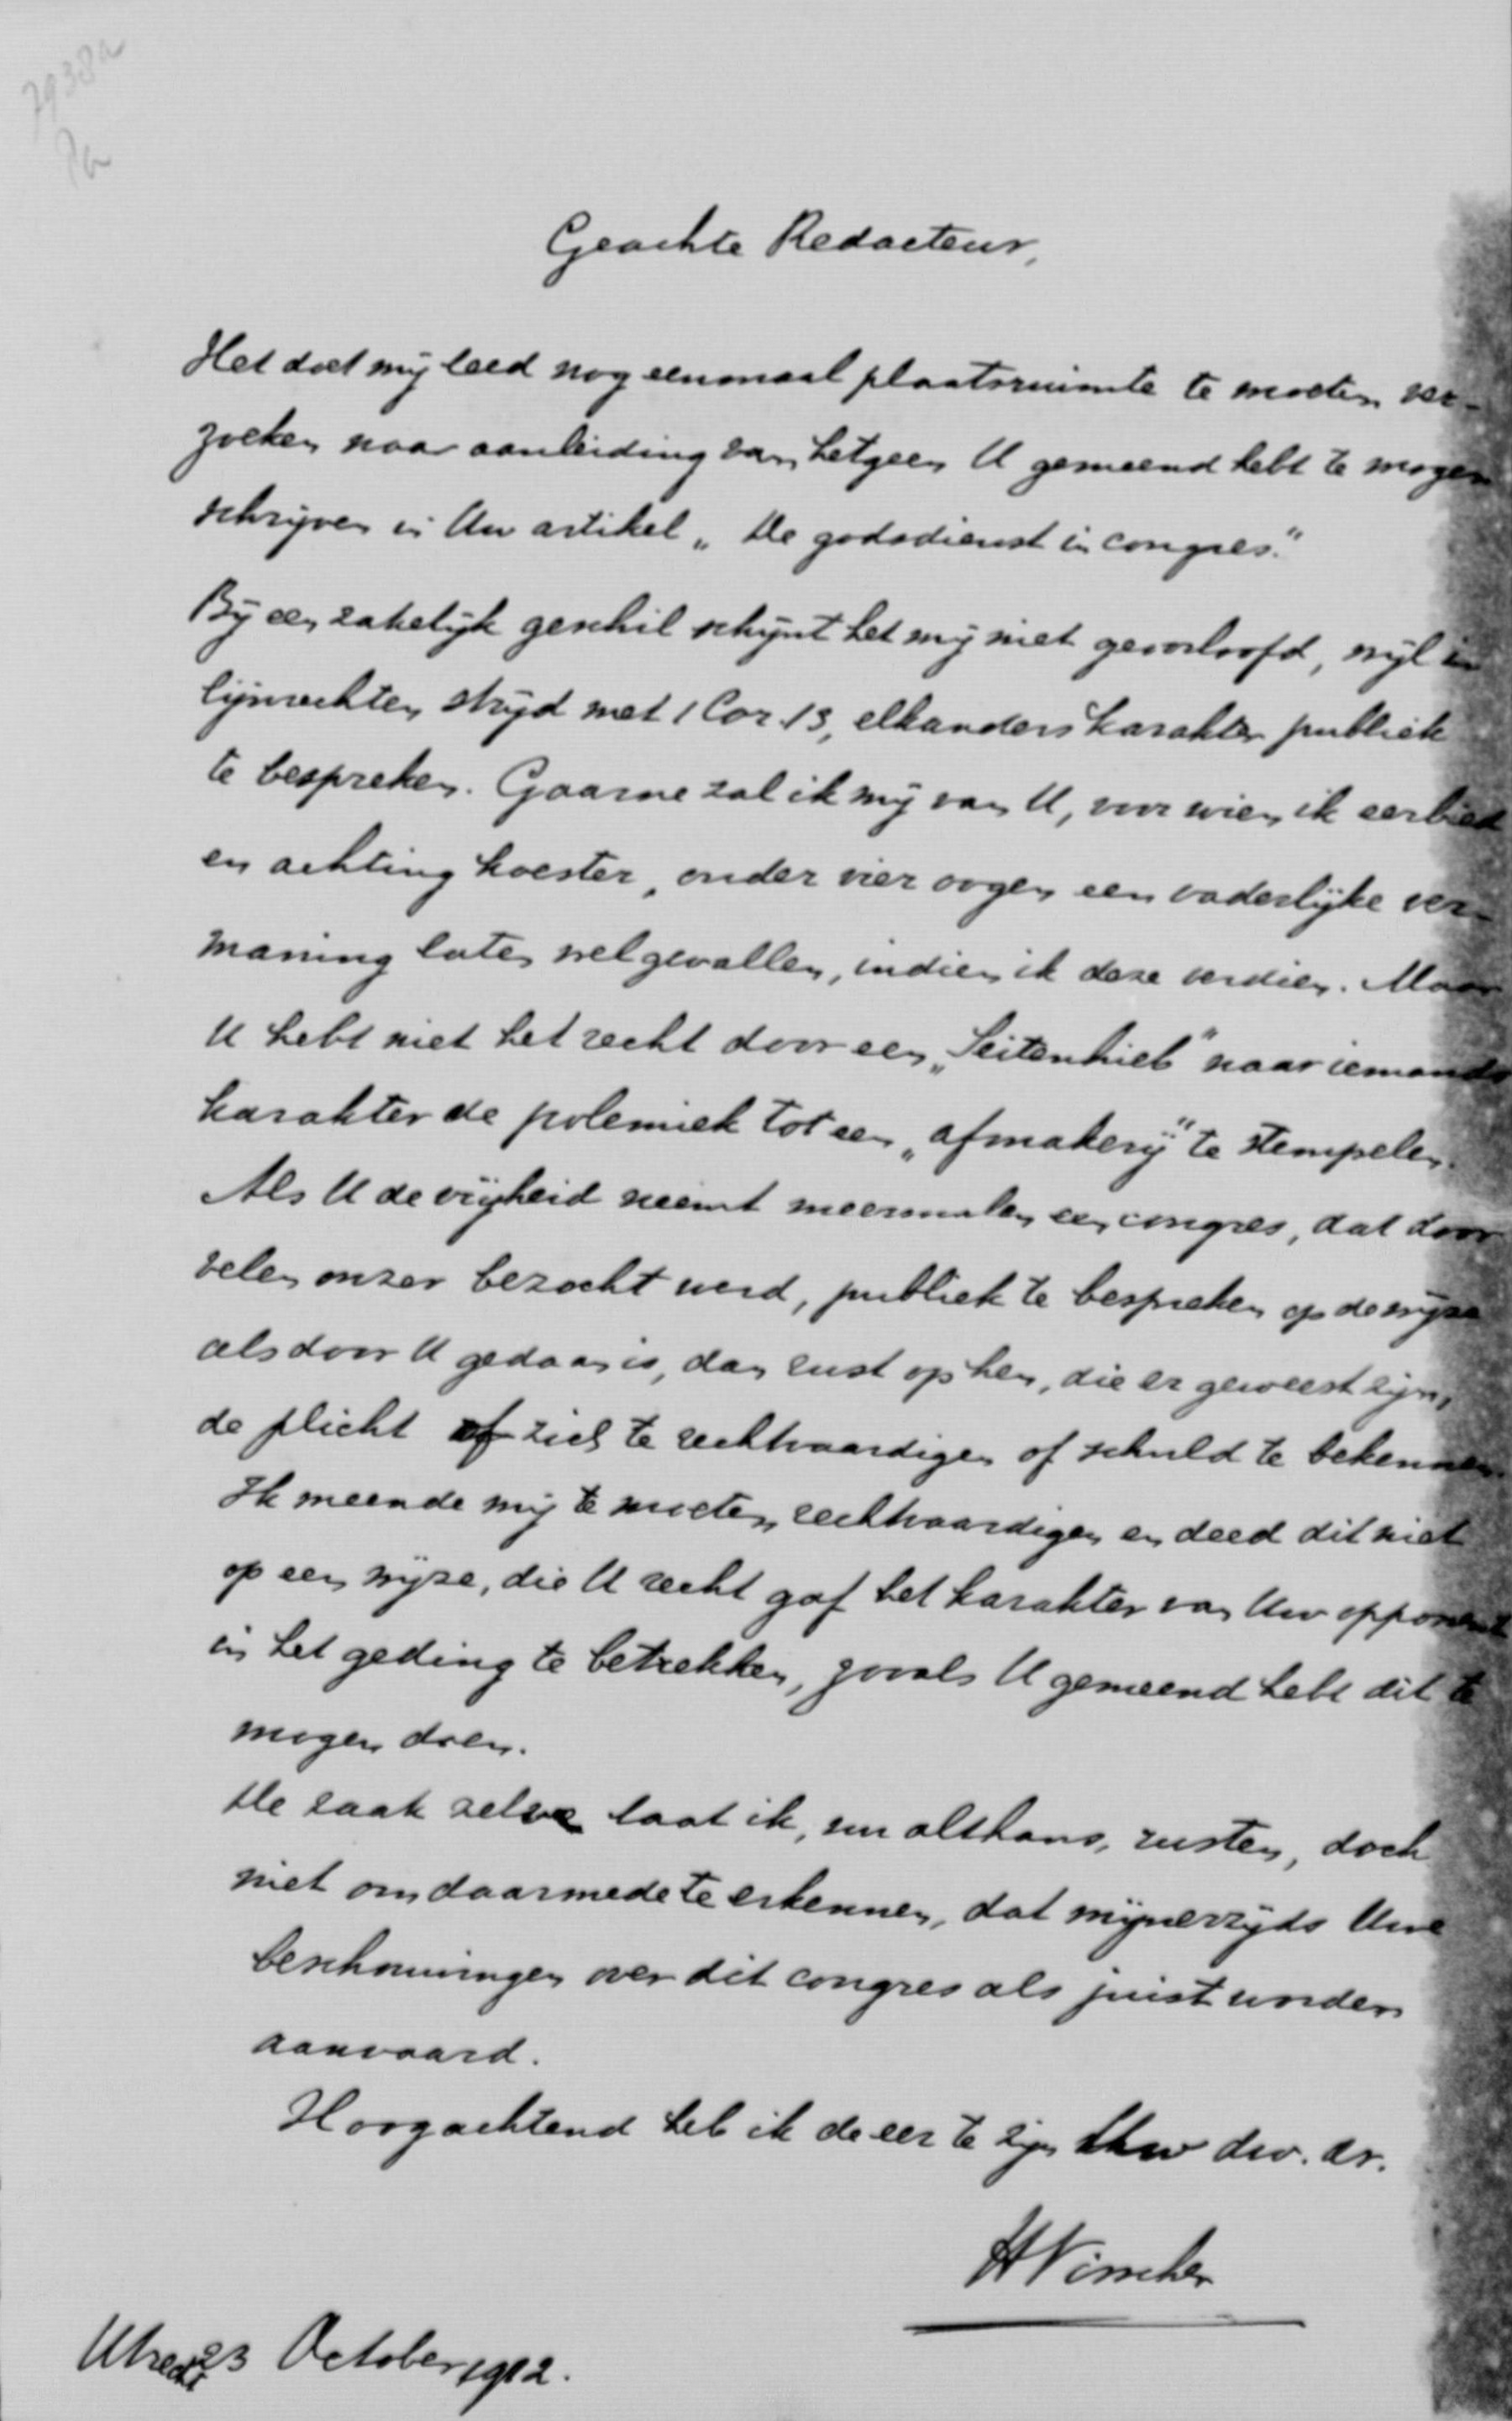 7938a
Pa
Geachte Redacteur,
Het doet mij leed nog eenmaal plaatsruimte te moeten ver-
zoeken naar aanleiding van hetgeen U gemeend hebt te mogen
schrijven in Uw artikel „De godsdienst in congres."
Bij een zakelijk geschil schijnt het mij niet geoorloofd, wijl in
lijnrechten strijd met 1 Cor 13, elkanders karakter publiek
te bespreken. Gaarne zal ik mij van U, voor wien ik eerbied
en achting koester, onder vier oogen een vaderlijke ver-
maning laten welgevallen, indien ik deze verdien. Maar
U hebt niet het recht door een „Seitenhieb" naar iemands
karakter de polemiek tot een „afmakerij" te stempelen.
Als U de vrijheid neemt meermalen een congres, dat door
velen onzer bezocht werd, publiek te bespreken op de wijze
als door U gedaan is, dan rust op hen, die er geweest zijn,
de plicht of zich te rechtvaardigen of schuld te bekennen.
Ik meende mij te moeten rechtvaardigen en deed dit niet
op een wijze, die U recht gaf het karakter van Uw opponent
in het geding te betrekken, zooals U gemeend hebt dit te
mogen doen.
De zaak zelve laat ik, nu althans, rusten, doch
niet om daarmede te erkennen, dat mijnerzijds Uwe
beschouwingen over dit congres als juist worden
aanvaard.
Hoogachtend heb ik de eer te zijn Uw dw. dr.
H Visscher
Utrecht 23 October 1912.